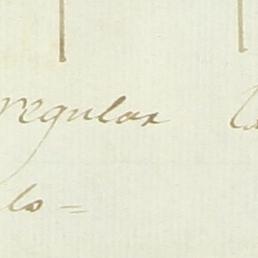 regular
lo=